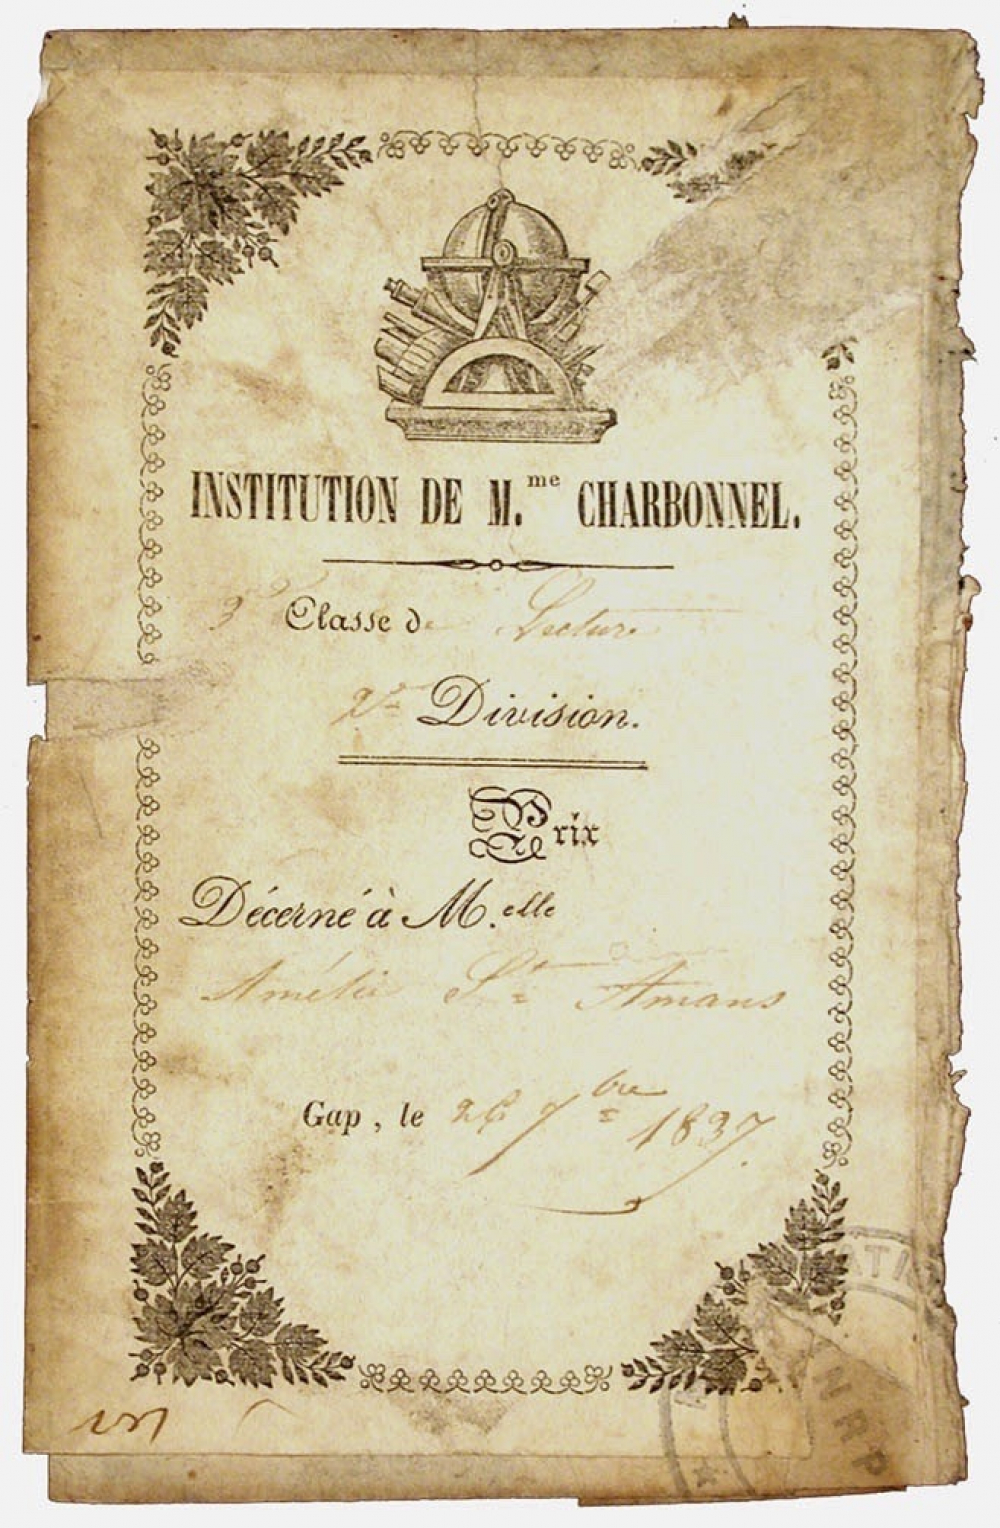 INSTITUTION DE M.me CHARBONNEL.
3e Classe de Lecture
2me Division.
Prix
Décerné à M.elle
Amélie St Amans
Gap, le 26 7bre 1837.